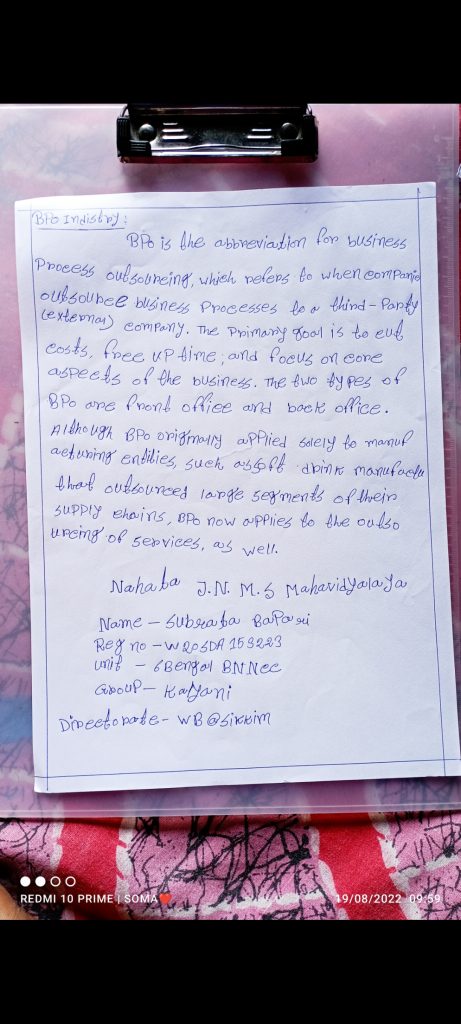 BPO Indistry :
BPO is the abbreviation for business
Process outsourcing, which refers to when companie
outsource business Processes to a third-Party
(external) company. The Primary goal is to cut
costs, free up time, and focus on core
aspects of the business. The two types of
BPO are front office and back office.
Although BPO originally applied solely to manuf
acturing entities, such as soft drink manufactu
that outsourced large segments of their
supply chains, BPO now applies to the outso
urcing of services, as well.
Nahata J.N.M.S Mahavidyalaya
Name - Subrata Bapari
Reg no - WB20SDA153223
Unit - 6Bengal BN NCC
Group - Kalyani
Directorate - WB@Sikkim
REDMI 10 PRIME | SOMA❤️
19/08/2022 09:59